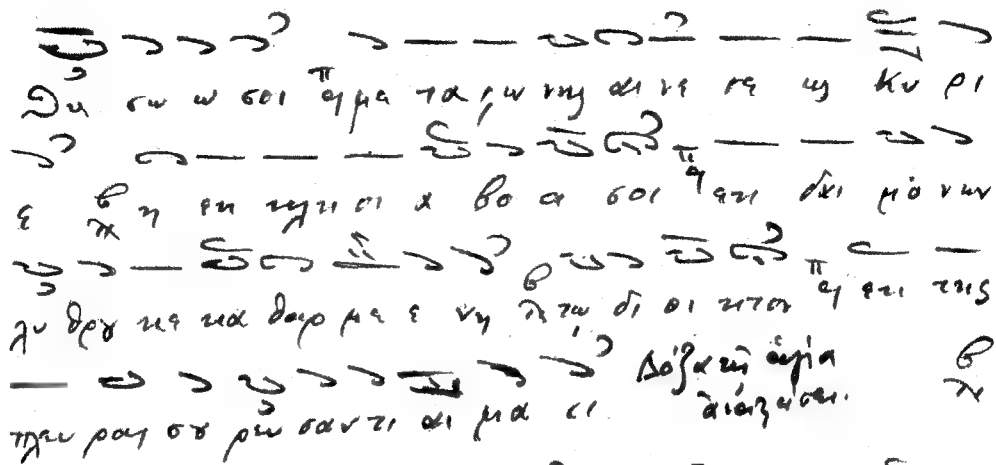 Θυ σω ω σοι με τα φω νης αι νε σε ως Κυ ρι
ε η εκ κλη σι α βο α σοι εκ δαι μο νων
λυ θρου κε κα θαρ με ε νη τω δι οι κτον εκ της
πλευ ρας σου ρευ σαντι αι μα τι Δόξα τῇ ἁγία